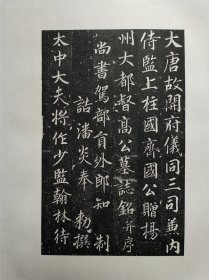 大唐故開府儀同三司兼内
侍監上柱國齊國公贈揚
州大都督高公墓誌銘并序
尚書駕部員外郎知制
誥潘炎奉 勅撰
太中大夫將作少監翰林待